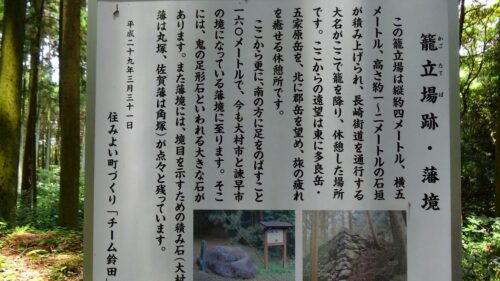 籠立場跡・藩境
かごたてば
この籠立場は縦約四メートル、横五
メートル、高さ約一〜二メートルの石垣
が積み上げられ、長崎街道を通行する
大名がここで籠を降り、休憩した場所
です。ここからの遠望は東に多良岳・
五家原岳を、北に郡岳を望め、旅の疲れ
を癒せる休憩所です。
ここから更に、南の方に足をのばすこと
一六〇メートルで、今も大村市と諫早市
の境になっている藩境に至ります。そこ
には、鬼の足形石といわれる大きな石が
あります。また藩境には、境目を示すための積み石（大村
藩は丸塚、佐賀藩は角塚）が点々と残っています。
平成二十九年三月三十一日
住みよい町づくり「チーム鈴田」